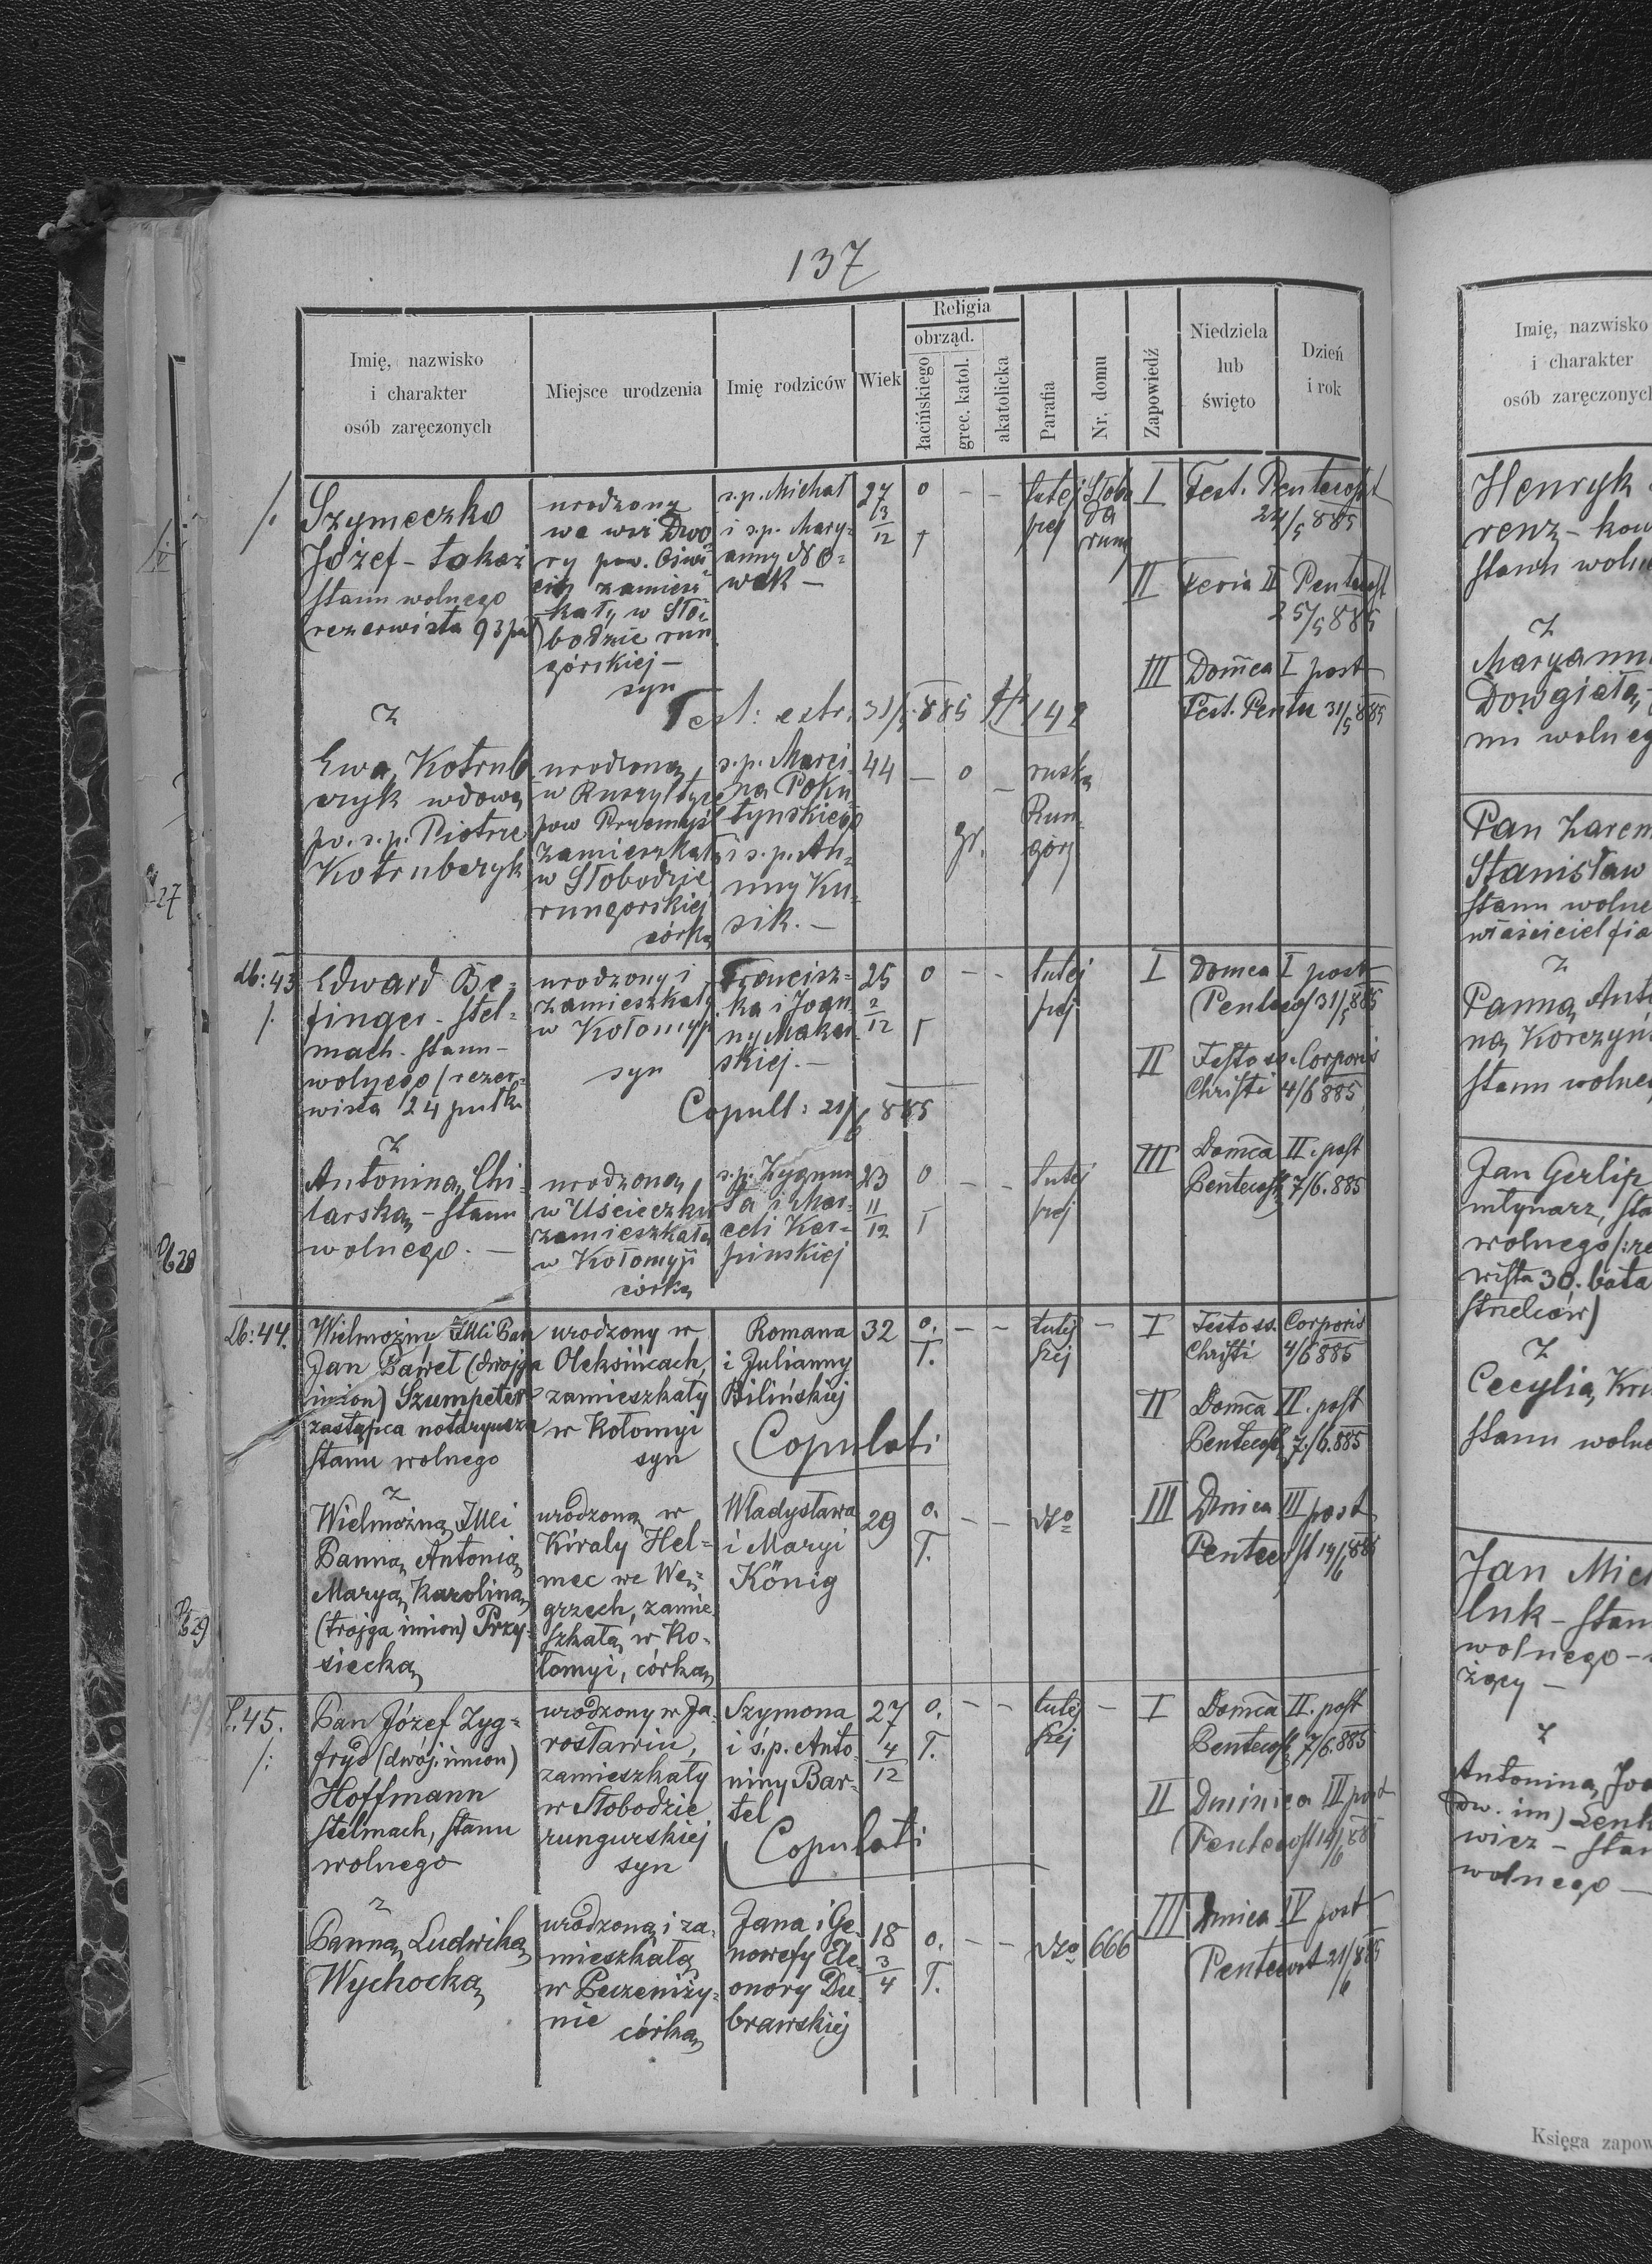 137
Religia
obrząd.
Imię, nazwisko
i charakter
osób zaręczonych
Miejsce urodzenia
Imię rodziców
Wiek
łacińskiego
grec. katol.
akatolicka
Parafia
Nr. domu
Zapowiedź
Niedziela
lub
święto
Dzień
i rok
Szymeczko
Józef - tokaż
stanu wolnego
(rezerwista 93
urodzony
we wsi Dwo
ry pow. Oświ
cim zamiesz
kały w Sło
bodzie run
górskiej —
syn
s.p. Michał
i s.p. Mary-
anny No-
wak —
27
3/12
o - -
tutej
szej
Słobo
da
rung
I Fest. Pentecost
24/5 885
II Feria II Pentecost
25/5 885
III Domca I post
Fest. Pente 31/5 885
Test: extr. 31/5 885 # 142
z
Ewą Kotrub
czyk wdową
po s.p. Piotrze
Kotrubczyk
urodzoną
pow Przemyśl
zamieszkałą
w Słobodzie
rungorskiej
córką
s.p. Marci-
na Poku-
tynskiego
i s.p. An-
ny Ku-
sik. —
44
— o -
gr.
ruska
Run-
górj
Lb: 43
Edward Be-
finger - stel-
mach - stanu
wolnego / rezer-
wista 24 pułku
urodzony i
zamieszkały
w Kołomyji
syn
Francisz-
ka i Joan
ny Makar
skiej. —
25
2/12
o - -
tutej
szej
I Domca I post
Pentecos 31/5 885
II Festo ss. Corporis
Christi 4/6 885
III Domca II. post
Pentecost 7/6. 885
Copult: 21/6 885
z
Antoniną Chi-
larską - stanu
wolnego. —
urodzoną
w Uścieczku
zamieszkałą
w Kołomyji
córką
s.p. Zygmun
ta i Mar-
celi Kar-
pinskiej
23
11/12
o - -
tutej
szej
Lb: 44.
Wielmożny JMci Pan
Jan Paweł (dwojga
imion) Szumpeter
zastępca notaryusza
stanu wolnego
urodzony w
Oleksińcach,
zamieszkały
w Kołomyi
syn
Romana
i Julianny
Bilińskiej
32
o. - -
T.
tutej
szej
-
I Festo ss. Corporis
Christi 4/6 885
II Domca II. post
Pentecost 7/6. 885
III Dnica III post
Pentecost 14/6 885
Copulati
z
Wielmożną JMci
Panną Antonią
Maryą Karoliną
(trojga imion) Przy-
siecką
urodzoną w
Kiraly Hel-
mec we Wę-
grzech, zamie
szkałą w Ko-
łomyi, córką
Władysława
i Maryi
König
29
o. - -
T.
L. 45.
Pan Józef Zyg-
fryd (dwoj. imion)
Hoffmann
stelmach, stanu
wolnego
urodzony w Ja-
rosławiu,
zamieszkały
w Słobodzie
rungurskiej
syn
Szymona
i ś.p. Anto
niny Bar-
tel
27
4/12
o. - -
T.
tutej
szej
-
I Domca II. post
Pentecost 7/6. 885
II Dminica III post
Pentecost 14/6 885
III Dnica IV post
Pentecost 21/6 885
Copulati
z
Panną Ludwiką
Wychocką
urodzoną i za-
mieszkałą
w Peczeniży-
nie córką
Jana i Ge
nowefy Ele-
onory Du-
brawskiej
18
3/4
o. - -
T.
666
Imię, nazwisko
i charakter
osób zaręczonych
Henryk
renz - kow
stanu woln
z
Maryann
Dowgiełą
nu wolneg
Pan Zarem
Stanisław
stanu wolne
właściciel fia
z
Panną Anto
ną Korczyń
stanu wolne
Jan Gerlip
młynarz, sta
wolnego /: re
wista 30. bata
strzelców)
z
Cecylią Kru
stanu wolne
Jan Mich
luk - stan
wolnego -
żący —
z
Antoniną Joa
(dw. im) Lenk
wicz - stan
wolnego —
Księga zapow